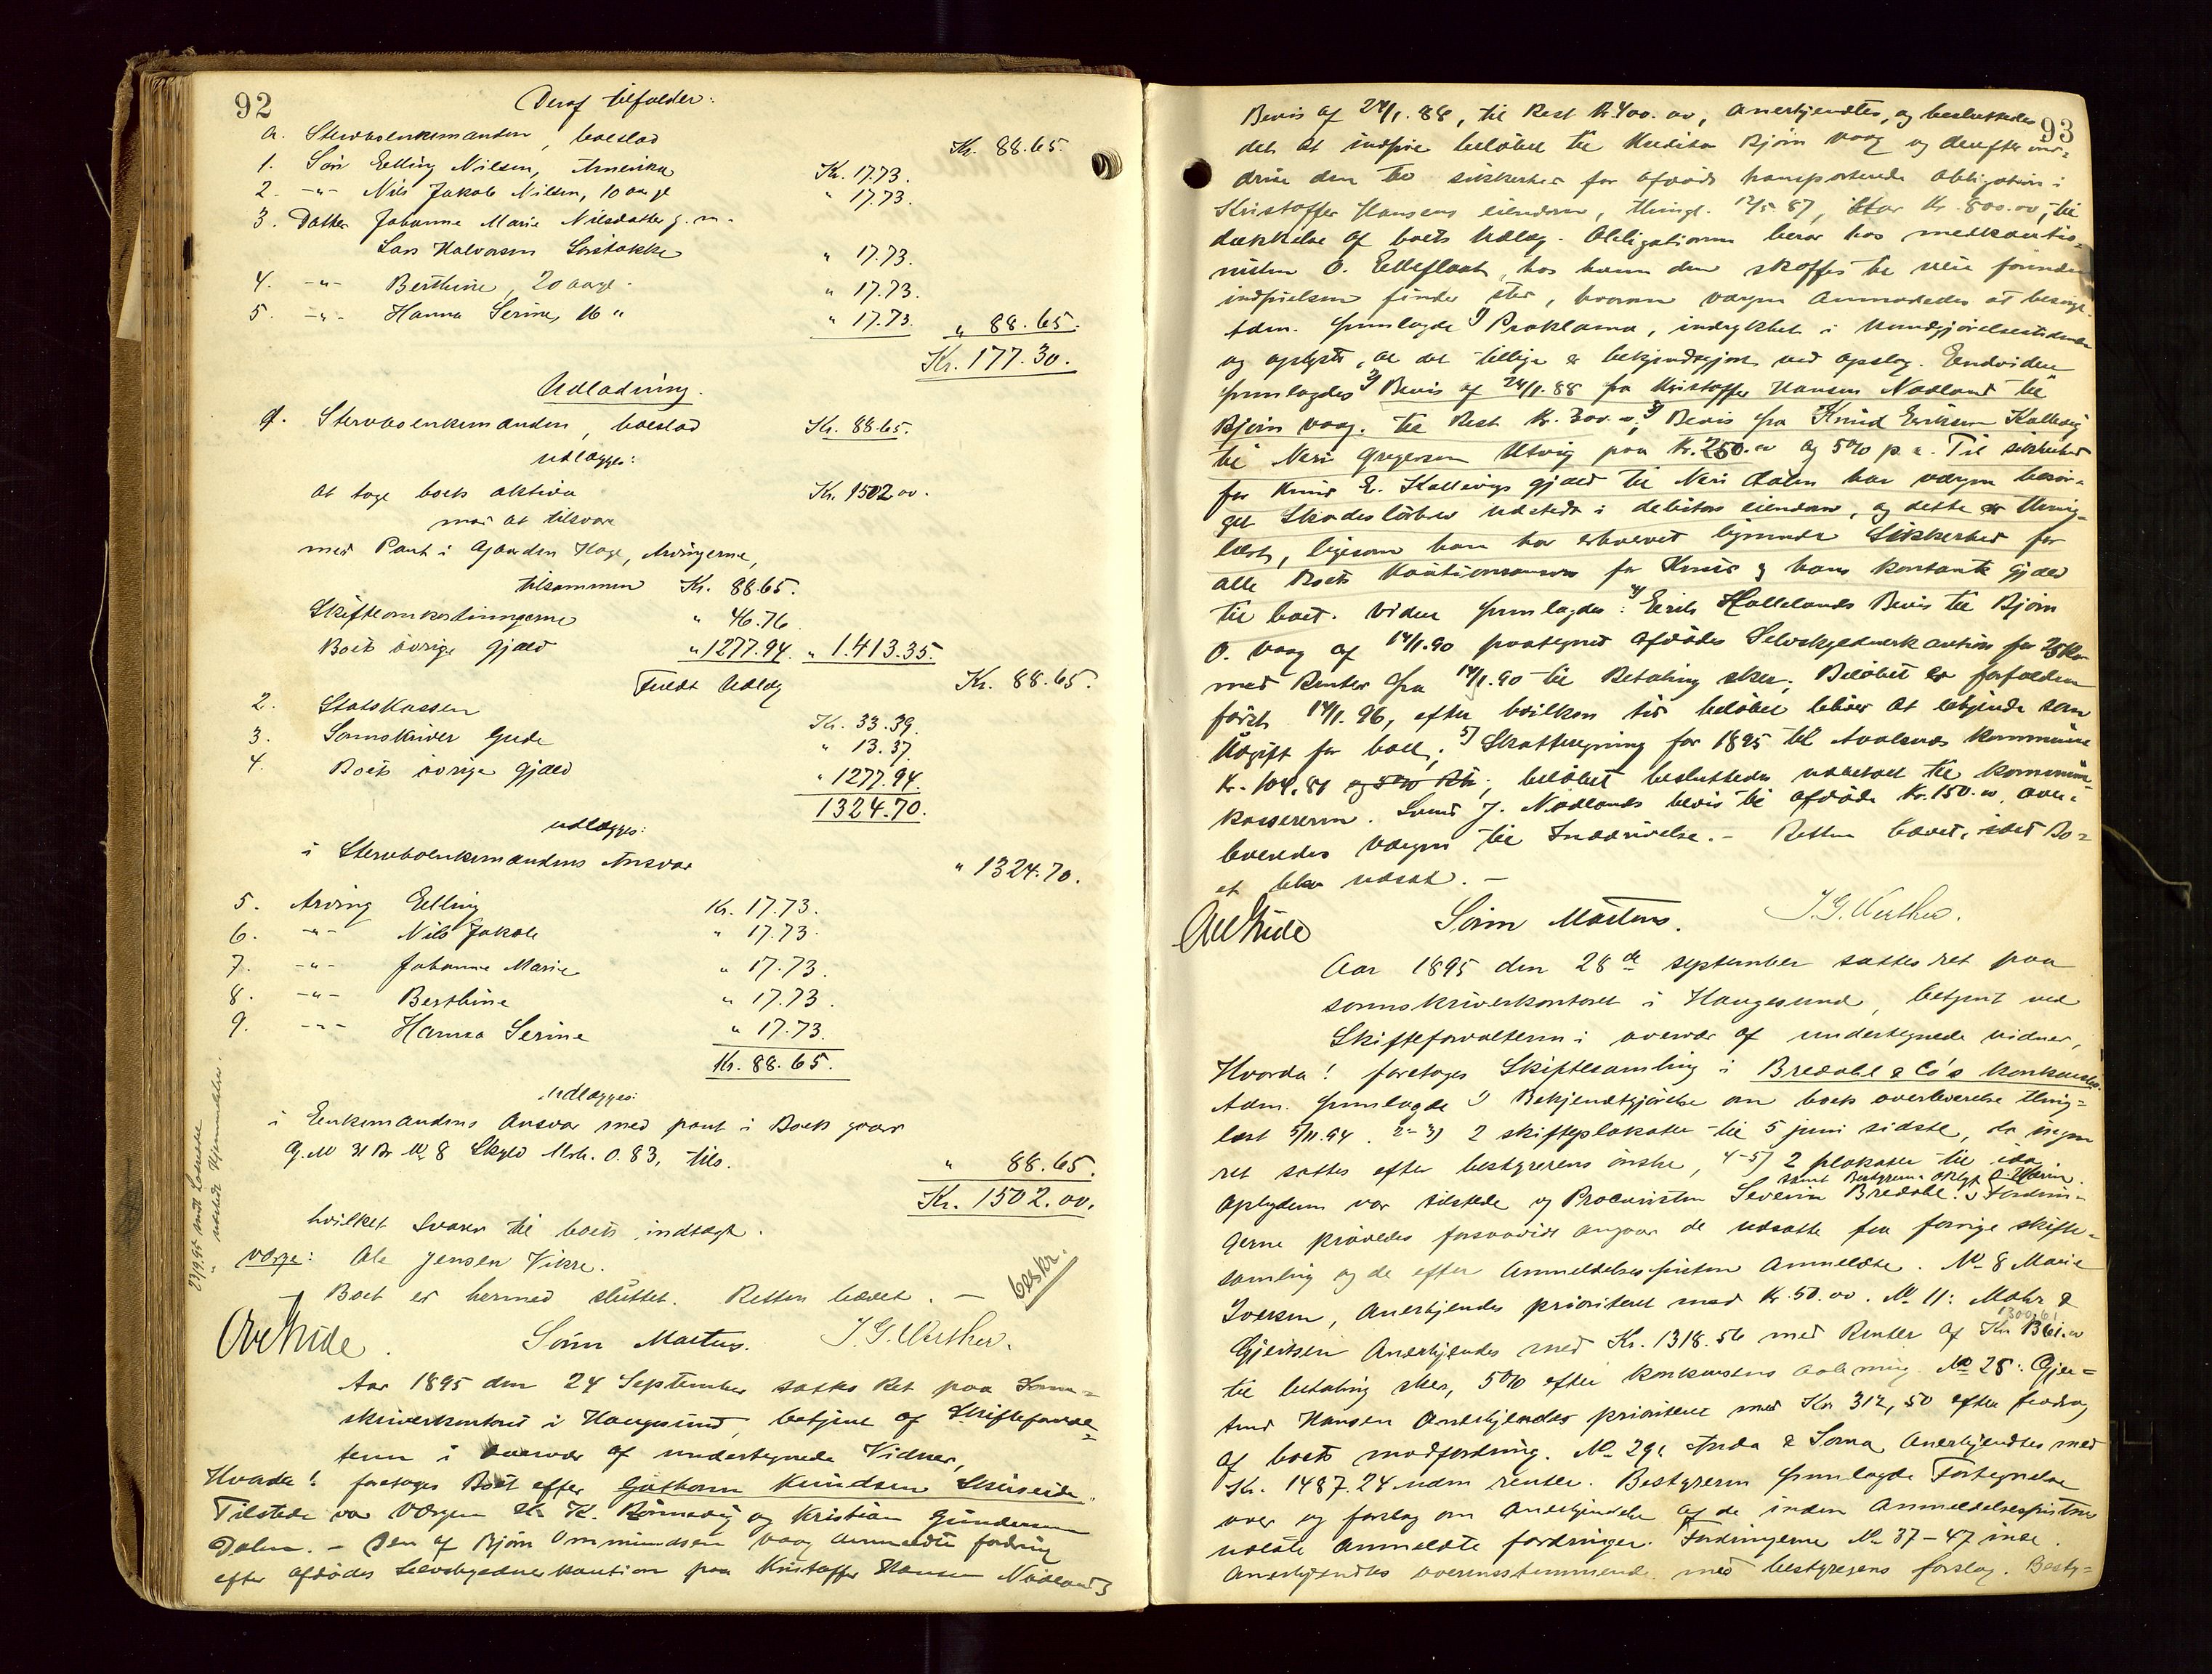 92
Deraf tilfalder:
a. Stervboenkemanden, boeslod Kr. 88.65.
1. Søn Elling Nilsen, Amerika Kr. 17.73.
2. -"- Nils Jakob Nilsen, 10 aar gl " 17.73.
3. Datter Johanne Marie Nilsdatter g. m.
Lars Halvorsen " 17.73.
4. -"- Berthine, 20 aar gl. " 17.73.
5. -"- Hanna Serine, 16 " " 17.73. " 88.65.
Kr. 177.30.
Udlodning.
1. Stervboenkemanden, boeslod Kr. 88.65.
udlægges:
at tage boets aktiva Kr. 1502.00.
mod at tilsvare
med Pant i Gaarden Hage, Arvingerne,
tilsammen Kr. 88.65.
Skifteomkostningerne " 46.76
Boets øvrige gjæld " 1277.94. " 1.413.35.
Fuldt Udlæg Kr. 88.65.
2. Statskassen Kr. 33.39.
3. Sorenskriver Gude " 13.37.
4. Boets øvrige gjæld " 1277.94.
1324.70.
udlægges:
i Stervboenkemandens Ansvar " 1324.70.
5. Arving Elling Kr. 17.73.
6. -"- Nils Jakob " 17.73.
7. -"- Johanne Marie " 17.73.
8. -"- Berthine " 17.73.
9. -"- Hanna Serine " 17.73.
Kr. 88.65.
udlægges:
i Enkemandens Ansvar med pant i Boets gaar
G. No 31 Br. No 8 Skyld Mrk. 0.83, tils. " 88.65.
Kr. 1502.00.
hvilket svarer til boets indtægt.
Værge: Ole Jensen Vikre.
Boet er hermed sluttet. Retten hævet. —
beskr.
Ove Gude. Sørin Martens. J. G. Werther.
Aar 1895 den 24 September sattes Ret paa Soren=
skriverkontoret i Haugesund, betjent af Skifteforval=
teren i overvær af undertegnede Vidner,
Hvorda! foretoges Boet efter Guthorm Knudsen
Tilstede var Værgen K. K. og Kristian Gundersen
Dalen. — Den af Bjørn Ommundsen Vaag anmeldte fordring
efter afdødes selvskyldnerkaution paa Kristoffer Hansen Nødlands
93
Bevis af 24/1. 88, til Rest Kr. 400.00, anerkjendtes, og besluttedes
det at indfrie beløbet til Kreditor Bjørn Vaag og derefter ind=
drive den til sikkerhed for afdøde transporterede obligation i
Kristoffer Hansens eiendom, thingl. 12/5. 87, stor Kr. 800.00, til
dækkelse af boets Udlæg. Obligationen beror hos medkautio=
nisten O. Eltefloat, hos ham den skaffes til veie forinden
indfrielsen finder sted, hvorom værgen anmodedes at besørge.
Adm. fremlagde 1) Proklama, indrykket i Kundgjørelsestidende
og oplyste, at det tillige er bekjendtgjort ved opslag. Endvidere
fremlagdes 2) Bevis af 24/1. 88 fra Kristoffer Hansen Nødland til
Bjørn Vaag. til Rest Kr. 300.00; 3) Bevis fra Knud Eriksen Kallevig
til Neri Gregersen Utvig paa Kr. 250.00 og 5% p. a. Til sikkerhed
for Knud E. Kallevigs gjæld til Neri har værgen besør=
get Skadesløsbrev udstedt i debitors eiendom, og dette er thing=
læst, ligesom han har erhvervet lignende Sikkerhed for
alle Boets Kautionsansvar for Knud og hans kontante gjæld
til boet. Videre fremlagdes: 4) Eriks Hallelands Bevis til Bjørn
O. Vaag af 14/1. 90 paategnet afdødes Selvskyldnerkaution for
med Renter fra 14/1. 90 til Betaling sker. Beløbet er forfalden
først 14/1. 96, efter hvilken tid beløbet bliver at
Udgift for boet; 5) Skatteregning for 1895 til Avalsnes kommune
Kr. 104.81 beløbet besluttedes udbetalt til kommune=
kassereren. J. Nødlands bevis til afdøde Kr. 150.00 over=
leveredes værgen til Inddrivelse. — Retten hævet, idet Bo=
et blev udsat. —
Ove Gude Sørin Martens. J. G. Werther.
Aar 1895 den 28de september sattes ret paa
sorenskriverkontoret i Haugesund, betjent ved
Skifteforvalteren i overvær af undertegnede vidner,
Hvorda! foretoges Skiftesamling i Bredahl & Co's konkursbo.
Adm. fremlagde 1) Bekjendtgjørelse om boets overleverelse thing=
læst 5/11. 94. 2-3) 2 skifteplakater til 5 juni sidste, da ingen
ret sattes efter bestyrerens ønske, 4-5) 2 plakater til idag.
samt Bestyreren
Opbyderen var tilstede og Procuristen Severin Bredahl. Fordrin=
gerne prøvedes forsaavidt angaar de udsatte fra forrige skifte=
samling og de efter Anmeldelsesfristen anmeldte. No 8 Marie
Iversen, anerkjendes prioriteret med Kr. 50.00. No 11: Mohr &
Gjertsen anerkjendes med Kr. 1318.56 med Renter af Kr.
til betaling sker, 5% efter konkursens aabning. No 28: Gjer=
trud Hansen anerkjendes prioriteret med Kr. 312,50 efter fradrag
af boets modfordring. No 29: & Anerkjendtes med
Kr. 1487.24 uden renter. Bestyreren fremlagde Fortegnelse
over og forslag om anerkjendelse af de inden Anmeldelsesfristens
udløb anmeldte fordringer. Fordringerne No 37–47 incl.
anerkjendtes overensstemmende med bestyrerens forslag. Besty=
23/9. 95 
" udstedt Hjemmelsbrev.